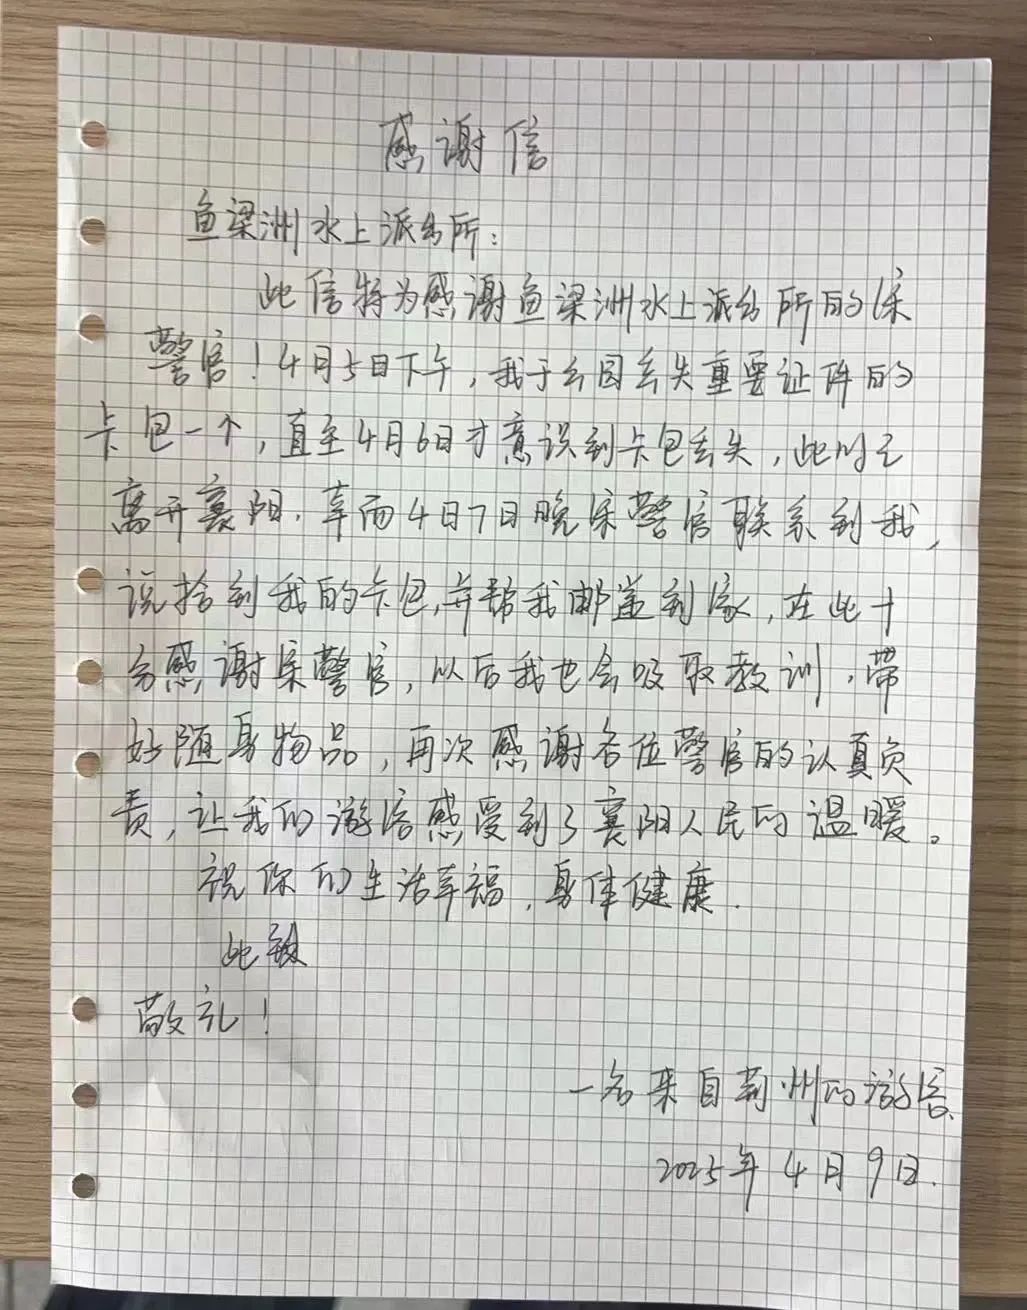 感谢信
鱼梁洲水上派出所:
此信特为感谢鱼梁洲水上派出所的
警官!4月5日下午,我于公园丢失重要证件的
卡包一个,直至4月6日才意识到卡包丢失,此时已
离开襄阳.幸而4日7日晚 警官联系到我,
说拾到我的卡包,并帮我邮递到家,在此十
分感谢 警官,以后我也会吸取教训,带
好随身物品,再次感谢各位警官的认真负
责,让我们游客感受到了襄阳人民的温暖。
祝你们生活幸福,身体健康.
此致
敬礼!
一名来自荆州的游客.
2025年4月9日.